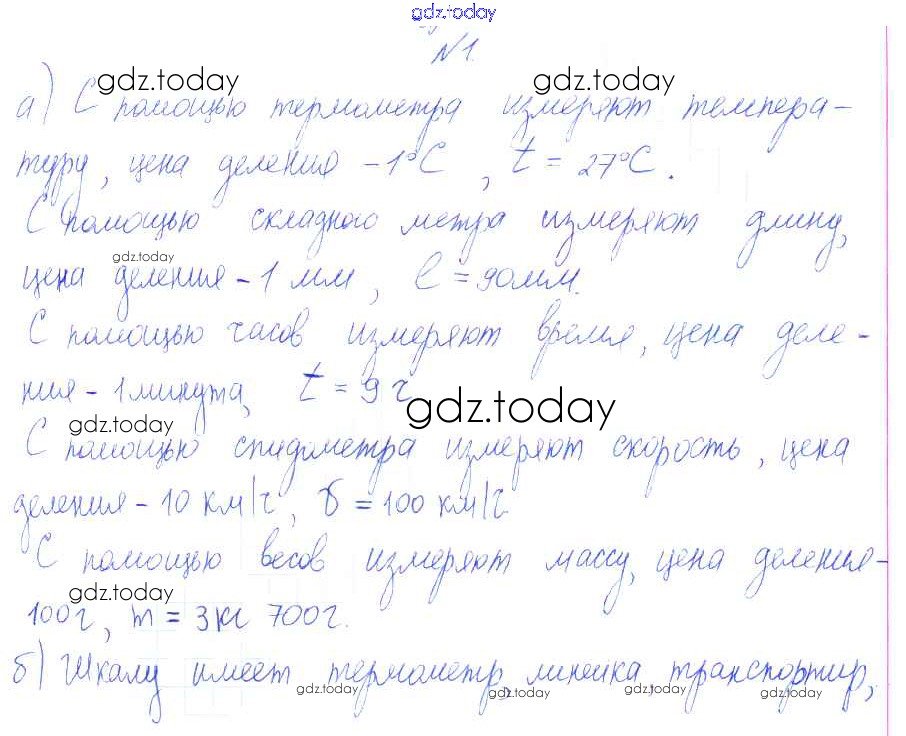 gdz.today
№1.
gdz.today gdz.today
а) С помощью термометра измеряют темпера-
туру, цена деления -1°C, t = 27°C.
С помощью складного метра измеряют длину,
gdz.today
цена деления - 1 мм, l = 90мм.
С помощью часов измеряют время, цена деле-
ния - 1 минута, t = 9 ч
gdz.today gdz.today
С помощью спидометра измеряют скорость, цена
деления - 10 км/ч, v = 100 км/ч
С помощью весов измеряют массу, цена деления-
gdz.today
100г, m = 3кг 700г.
б) Шкалу имеет термометр, линейка транспортир,
gdz.today gdz.today gdz.today gdz.today